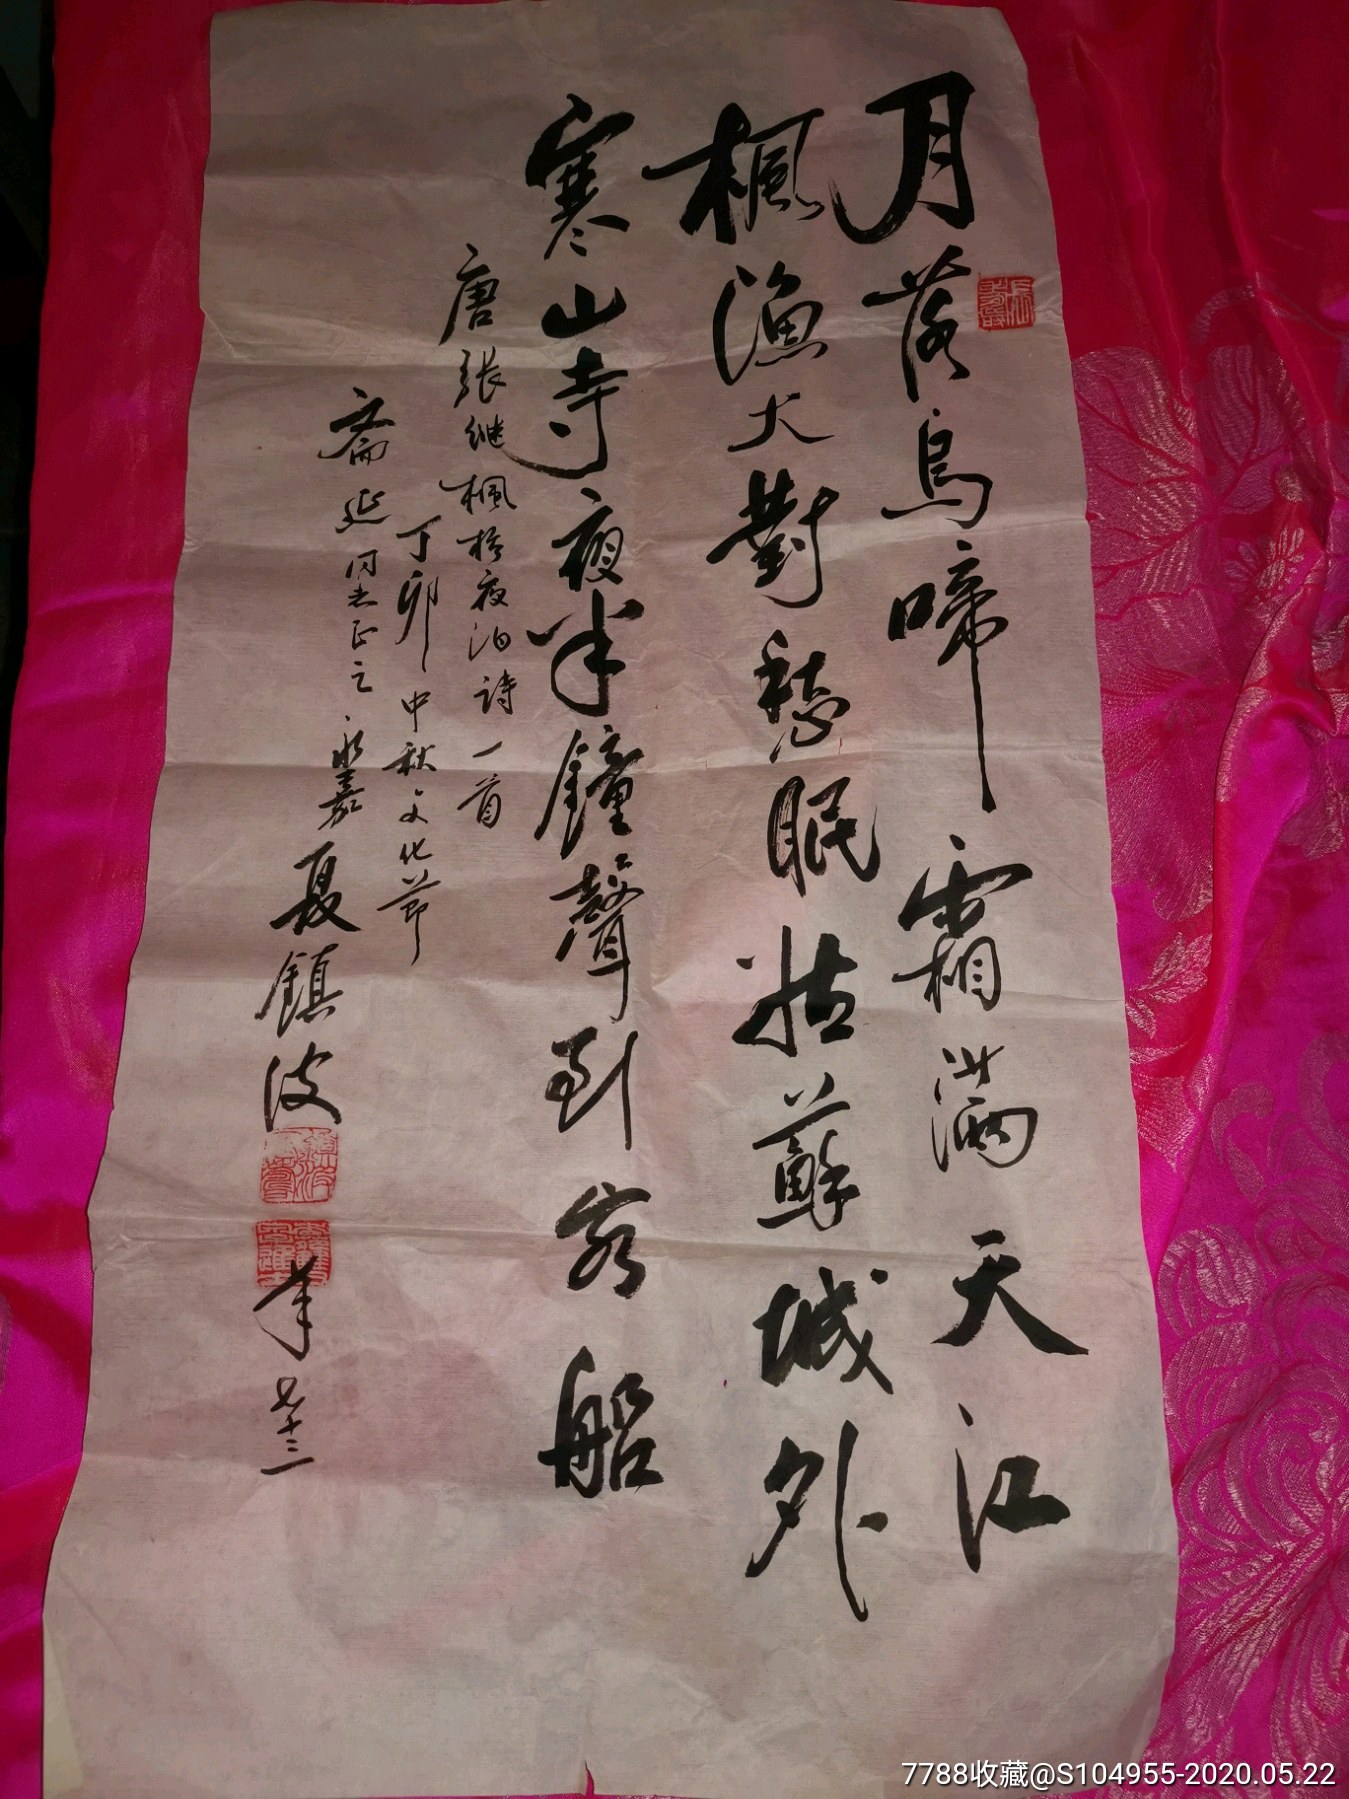 月落烏啼霜滿天江
楓漁火對愁眠姑蘇城外
寒山寺夜半鐘聲到客船
唐張继楓桥夜泊詩一首
丁卯中秋文化節
齋延同志正之永嘉夏鎮波年七十三
7788收藏@S104955-2020.05.22